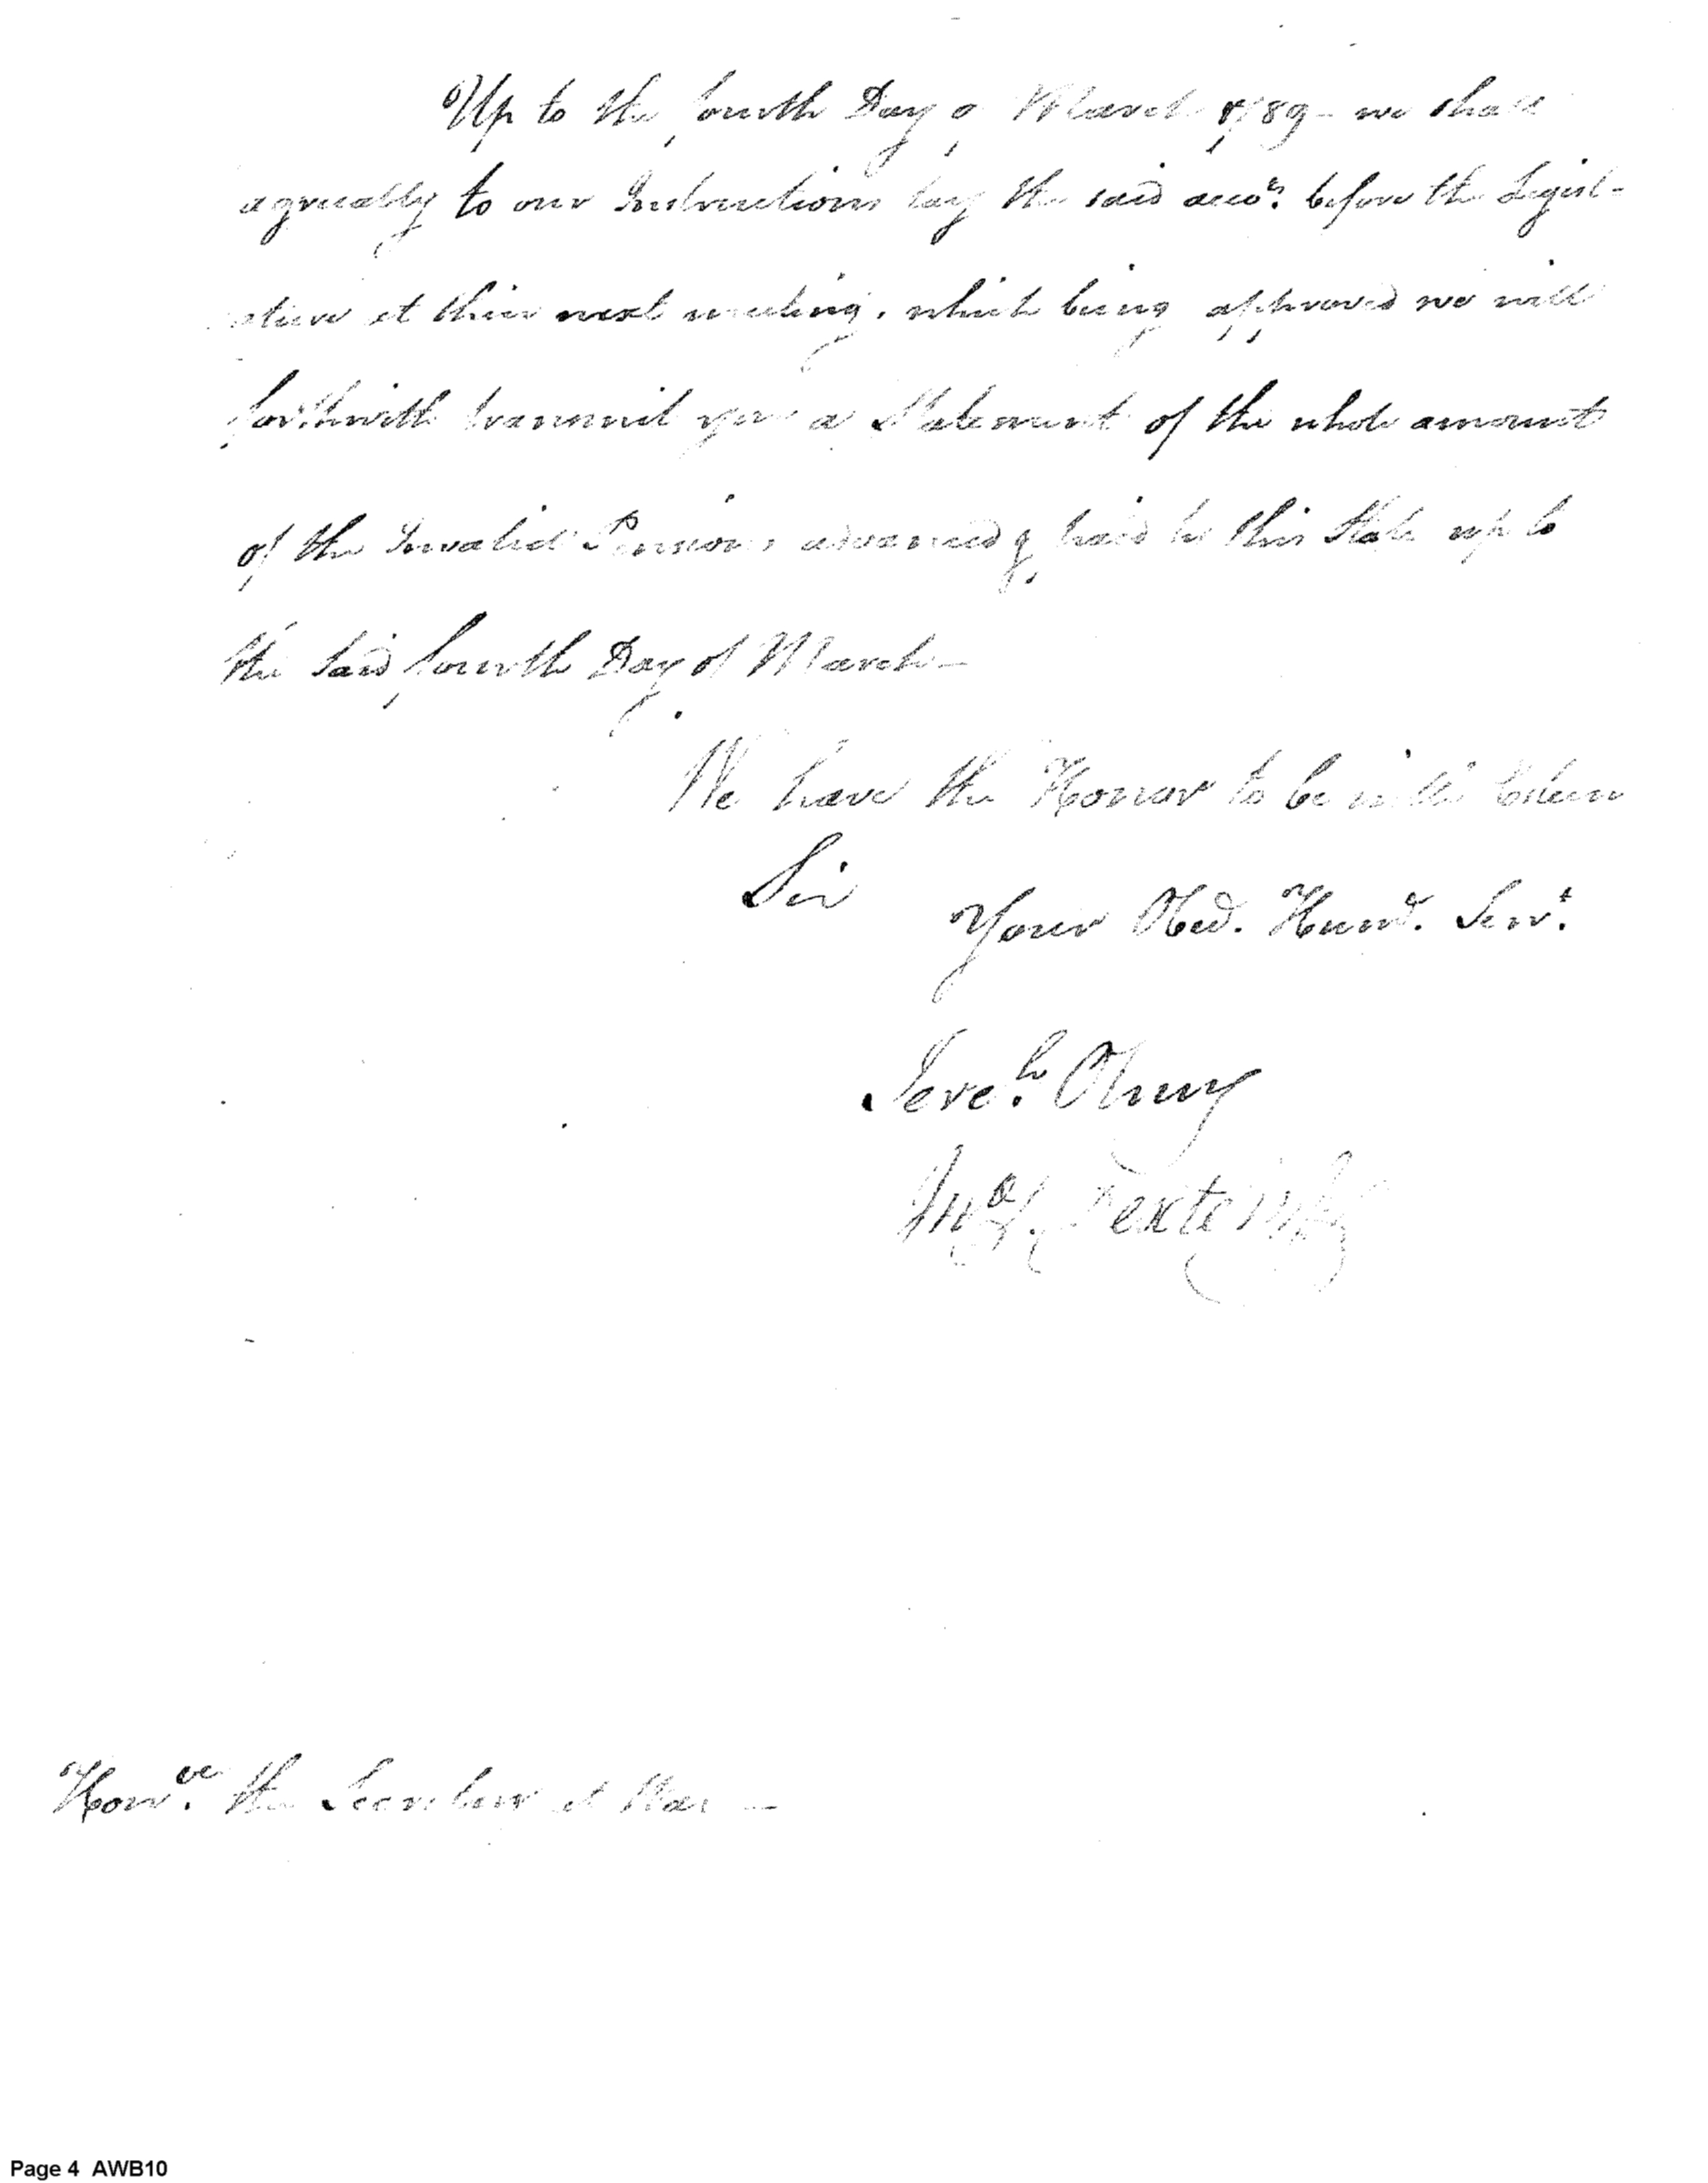 Up to the fourth Day of March 1789 - we shall
agreeably to our Instructions lay the said acco.ts before the Legisl-
ature at thier next meeting, which being approved we will
forthwith transmit you a Statement of the whole amount
of the Invalid Pensions advanced & paid by this State up to
the said fourth Day of March -
We have the Honor to be with Esteem
Sir
Your Obed. Hum.d. Serv.t
Jere.h Olney
Jn.o S. Dexter
Hon.ble the Secretary at War -
Page 4 AWB10